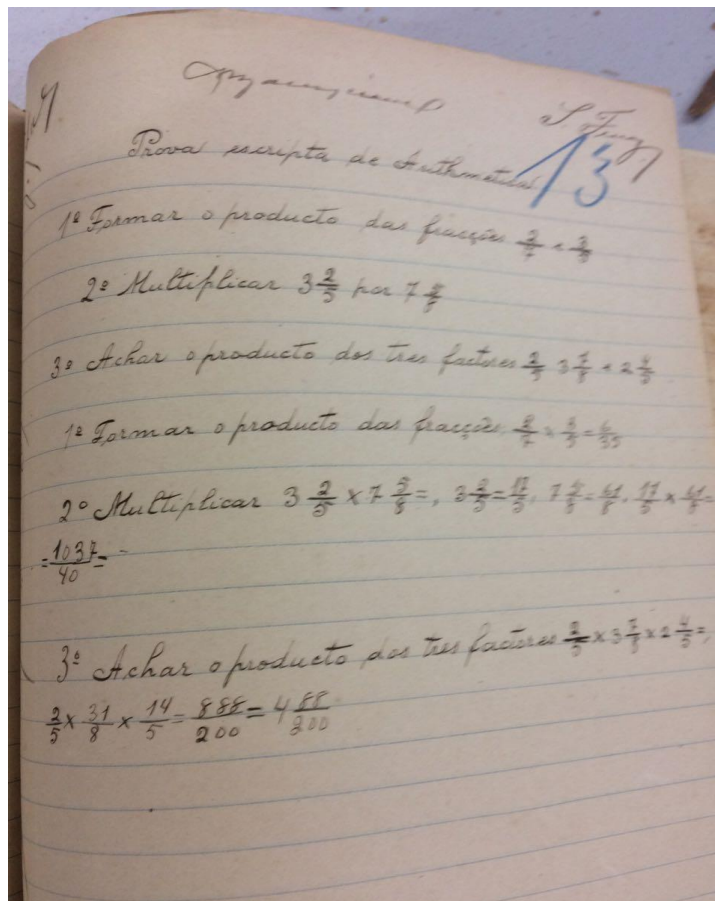 S. Ferraz
13
Prova escripta de Arithmetica
1º Formar o producto das fracções 2/7 e 3/5
2º Multiplicar 3 2/5 por 7 5/8
3º Achar o producto dos tres factores 2/5 3 7/8 e 2 4/5
1º Formar o producto das fracções 2/7 x 3/5 = 6/35
2º Multiplicar 3 2/5 x 7 5/8 =, 3 2/5 = 17/5, 7 5/8 = 61/8, 17/5 x 61/8 =
= 1037/40 =
3º Achar o producto dos tres factores 2/5 x 3 7/8 x 2 4/5 =,
2/5 x 31/8 x 14/5 = 888/200 = 4 88/200